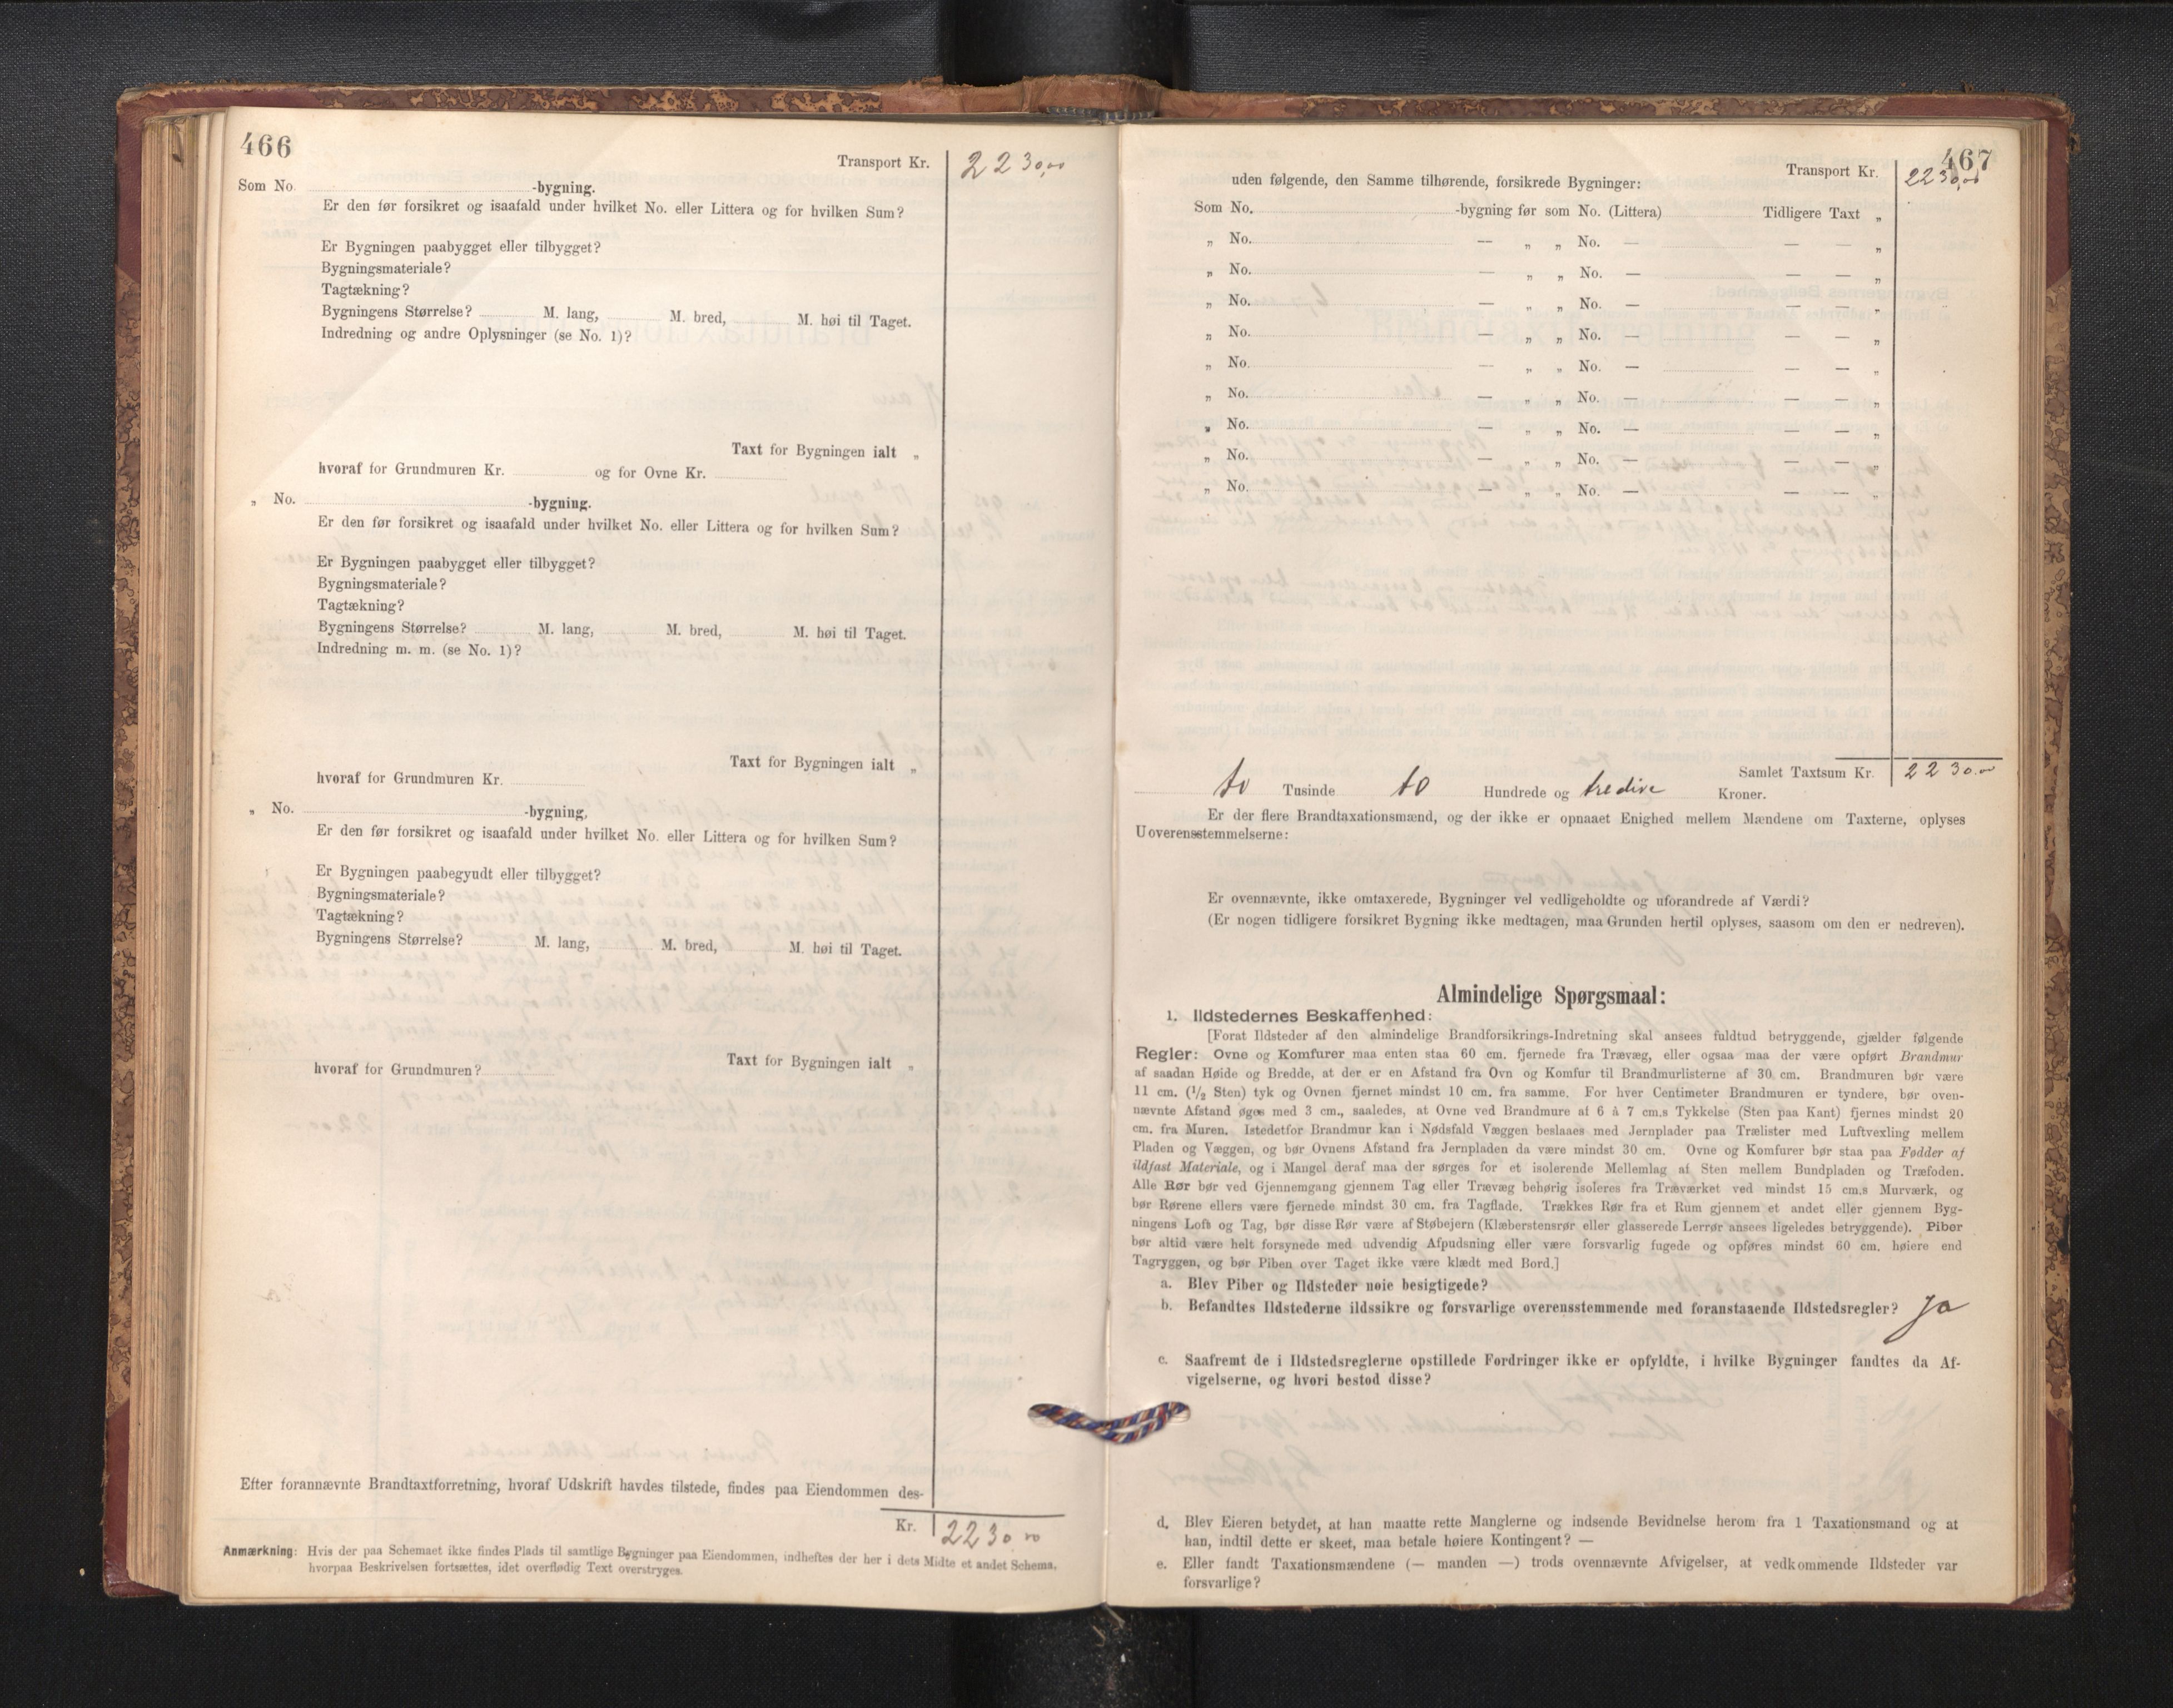 466
Transport Kr. 2230,00
Som No. -bygning.
Er den før forsikret og isaafald under hvilket No. eller Littera og for hvilken Sum?
Er Bygningen paabygget eller tilbygget?
Bygningsmateriale?
Tagtækning?
Bygningens Størrelse? M. lang, M. bred, M. høi til Taget.
Indredning og andre Oplysninger (se No. 1)?
Taxt for Bygningen ialt „
hvoraf for Grundmuren Kr. og for Ovne Kr.
„ No. -bygning.
Er den før forsikret og isaafald under hvilket No. eller Littera og for hvilken Sum?
Er Bygningen paabygget eller tilbygget?
Bygningsmateriale?
Tagtækning?
Bygningens Størrelse? M. lang, M. bred, M. høi til Taget.
Indredning m. m. (se No. 1)?
Taxt for Bygningen ialt „
hvoraf for Grundmuren Kr.
„ No. -bygning,
Er den før forsikret og isaafald under hvilket No. eller Littera og for hvilken Sum?
Er Bygningen paabegyndt eller tilbygget?
Bygningsmateriale?
Tagtækning?
Bygningens Størrelse? M. lang, M. bred, M. høi til Taget.
Taxt for Bygningen ialt „
hvoraf for Grundmuren?
Efter forannævnte Brandtaxtforretning, hvoraf Udskrift havdes tilstede, findes paa Eiendommen des-
Kr. 2230.00
Anmærkning: Hvis der paa Schemaet ikke findes Plads til samtlige Bygninger paa Eiendommen, indheftes der her i dets Midte et andet Schema,
hvorpaa Beskrivelsen fortsættes, idet overflødig Text overstryges.
467
Transport Kr. 2230,00
uden følgende, den Samme tilhørende, forsikrede Bygninger:
Som No. -bygning før som No. (Littera) Tidligere Taxt „
„ No. — „ „ No. — — — „
„ No. — „ „ No. — — — „
„ No. — „ „ No. — — — „
„ No. — „ „ No. — — — „
„ No. — „ „ No. — — — „
„ No. — „ „ No. — — — „
„ No. — „ „ No. — — — „
„ No. — „ „ No. — — — „
„ No. — „ „ No. — — — „
Samlet Taxtsum Kr. 2230.00
to Tusinde to Hundrede og tredive Kroner.
Er der flere Brandtaxationsmænd, og der ikke er opnaaet Enighed mellem Mændene om Taxterne, oplyses
Uoverensstemmelserne:
Er ovennævnte, ikke omtaxerede, Bygninger vel vedligeholdte og uforandrede af Værdi?
(Er nogen tidligere forsikret Bygning ikke medtagen, maa Grunden hertil oplyses, saasom om den er nedreven).
Almindelige Spørgsmaal:
1. Ildstedernes Beskaffenhed:
[Forat Ildsteder af den almindelige Brandforsikrings-Indretning skal ansees fuldtud betryggende, gjælder følgende
Regler: Ovne og Komfurer maa enten staa 60 cm. fjernede fra Trævæg, eller ogsaa maa der være opført Brandmur
af saadan Høide og Bredde, at der er en Afstand fra Ovn og Komfur til Brandmurlisterne af 30 cm. Brandmuren bør være
11 cm. (1/2 Sten) tyk og Ovnen fjernet mindst 10 cm. fra samme. For hver Centimeter Brandmuren er tyndere, bør oven-
nævnte Afstand øges med 3 cm., saaledes, at Ovne ved Brandmure af 6 à 7 cm.s Tykkelse (Sten paa Kant) fjernes mindst 20
cm. fra Muren. Istedetfor Brandmur kan i Nødsfald Væggen beslaaes med Jernplader paa Trælister med Luftvexling mellem
Pladen og Væggen, og bør Ovnens Afstand fra Jernpladen da være mindst 30 cm. Ovne og Komfurer bør staa paa Fødder af
ildfast Materiale, og i Mangel deraf maa der sørges for et isolerende Mellemlag af Sten mellem Bundpladen og Træfoden.
Alle Rør bør ved Gjennemgang gjennem Tag eller Trævæg behørig isoleres fra Træværket ved mindst 15 cm.s Murværk, og
bør Rørene ellers være fjernede mindst 30 cm. fra Tagflade. Trækkes Rør fra et Rum gjennem et andet eller gjennem Byg-
ningens Loft og Tag, bør disse Rør være af Støbejern (Klæberstensrør eller glasserede Lerrør ansees ligeledes betryggende). Piber
bør altid være helt forsynede med udvendig Afpudsning eller være forsvarlig fugede og opføres mindst 60 cm. høiere end
Tagryggen, og bør Piben over Taget ikke være klædt med Bord.]
a. Blev Piber og Ildsteder nøie besigtigede?
b. Befandtes Ildstederne ildssikre og forsvarlige overensstemmende med foranstaaende Ildstedsregler? Ja
c. Saafremt de i Ildstedsreglerne opstillede Fordringer ikke er opfyldte, i hvilke Bygninger fandtes da Af-
vigelserne, og hvori bestod disse?
d. Blev Eieren betydet, at han maatte rette Manglerne og indsende Bevidnelse herom fra 1 Taxationsmand og at
han, indtil dette er skeet, maa betale høiere Kontingent? —
e. Eller fandt Taxationsmændene (— manden —) trods ovennævnte Afvigelser, at vedkommende Ildsteder var
forsvarlige?